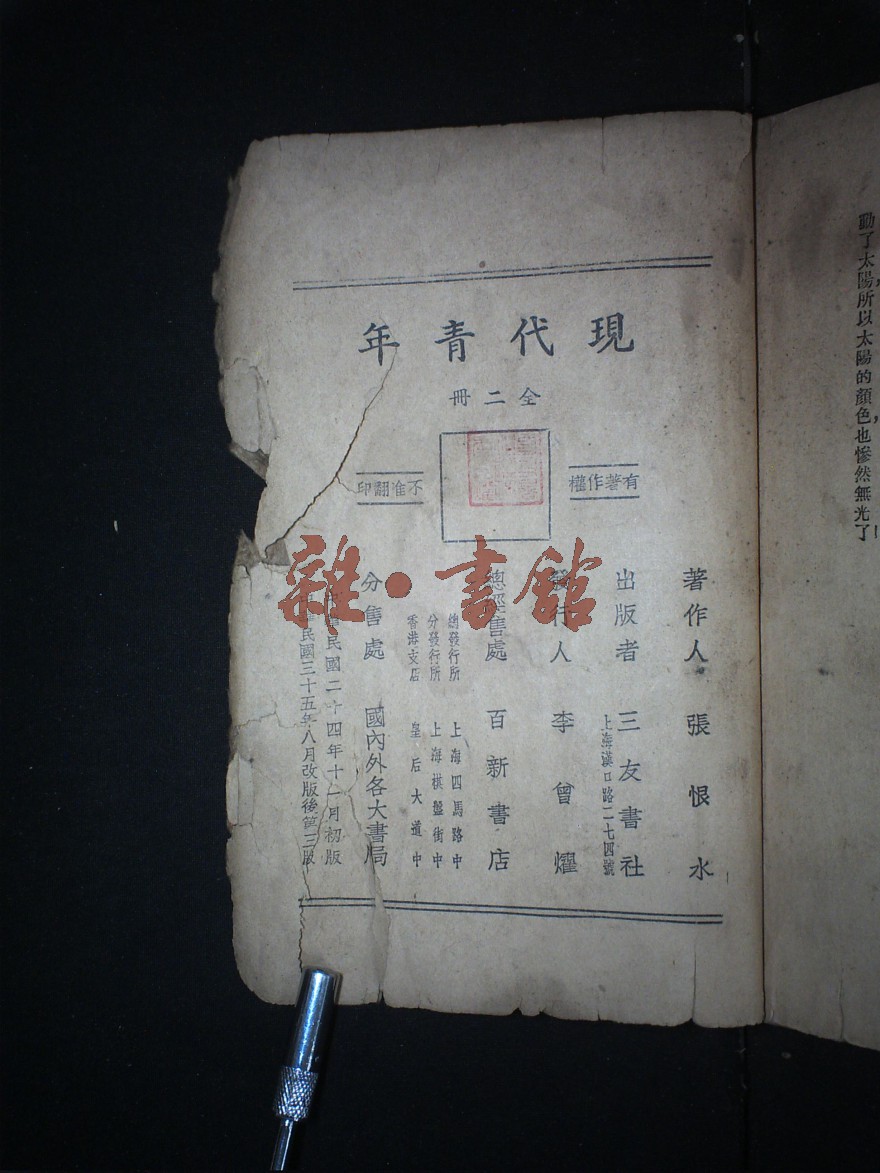 現代青年
全二冊
有著作權
不准翻印
著作人 張恨水
出版者 三友書社
上海漢口路二七四號
發行人 李曾燿
總經售處 百新書店
總發行所 上海四馬路中
分發行所 上海棋盤街中
香港支店 皇后大道中
分售處 國內外各大書局
民國二十四年十一月初版
民國三十五年八月改版後第三版
雜·書館
動了太陽,所以太陽的顏色,也慘然無光了